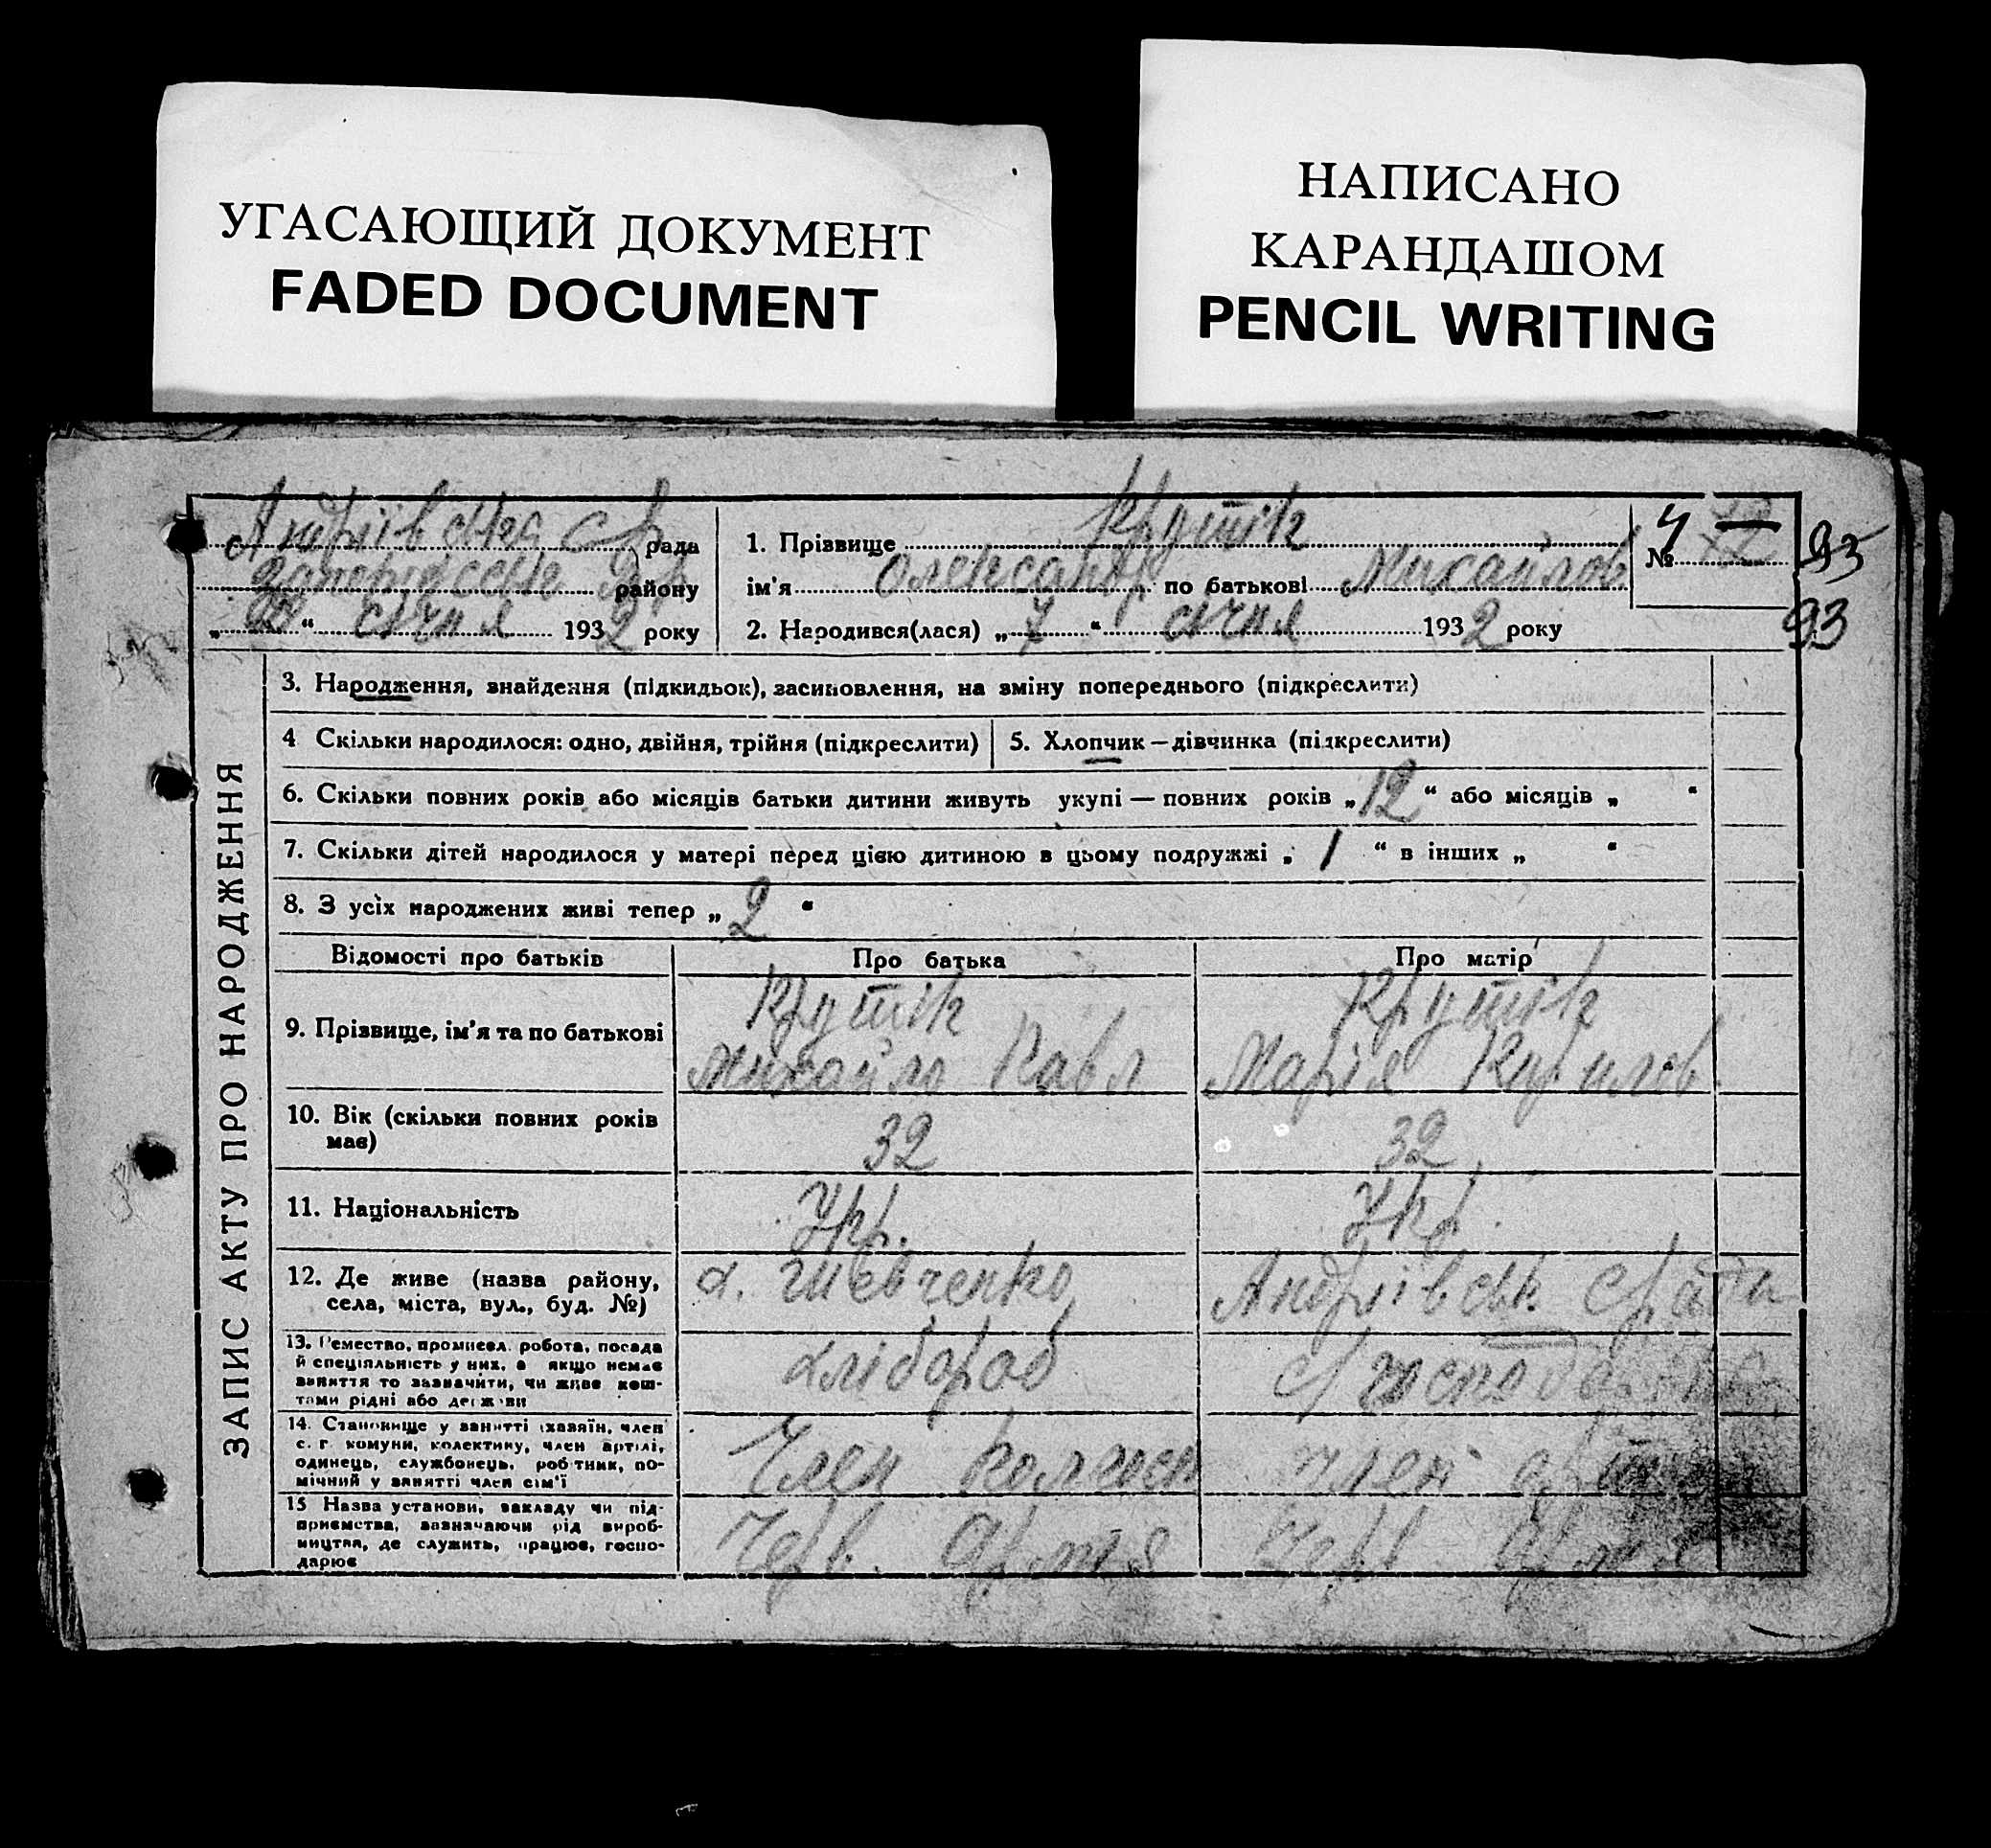 УГАСАЮЩИЙ ДОКУМЕНТ
FADED DOCUMENT
НАПИСАНО
КАРАНДАШОМ
PENCIL WRITING
Андріївська с/р рада
району
„ “ січня 1932 року
1. Прізвище Крутік
ім'я Олександр по батькові Михайлов
2. Народився(лася) „7“ січня 1932 року
№ 4
93
93
ЗАПИС АКТУ ПРО НАРОДЖЕННЯ
3. Народження, знайдення (підкидьок), засиновлення, на зміну попереднього (підкреслити)
4 Скільки народилося: одно, двійня, трійня (підкреслити)
5. Хлопчик — дівчинка (підкреслити)
6. Скільки повних років або місяців батьки дитини живуть укупі — повних років „12“ або місяців „ “
7. Скільки дітей народилося у матері перед цією дитиною в цьому подружжі „1“ в інших „ “
8. З усіх народжених живі тепер „2“
Відомості про батьків Про батька Про матір
9. Прізвище, ім'я та по батькові
Крутік
Михайло Павл
Крутік
Марія Кирилов.
10. Вік (скільки повних років
має)
32
32
11. Національність
Укр.
Укр.
12. Де живе (назва району,
села, міста, вул., буд. №)
х. Шевченко
Андріївськ. с/рада
13. Ремество, промисел, робота, посада
й спеціяльність у них, а якщо немає
заняття то зазначити, чи живе кош-
тами рідні або держави
хлібороб
14. Становище у занятті хазяїн, член
с. г. комуни, колективу, член артілі,
одинець, службонець, робітник, по-
мічний у занятті член сім'ї
Член колгосп
член
15 Назва установи, закладу чи під-
приємства, зазначаючи рід вироб-
ництва, де служить, працює, госпо-
дарює
Черв. Армія
Черв Армія